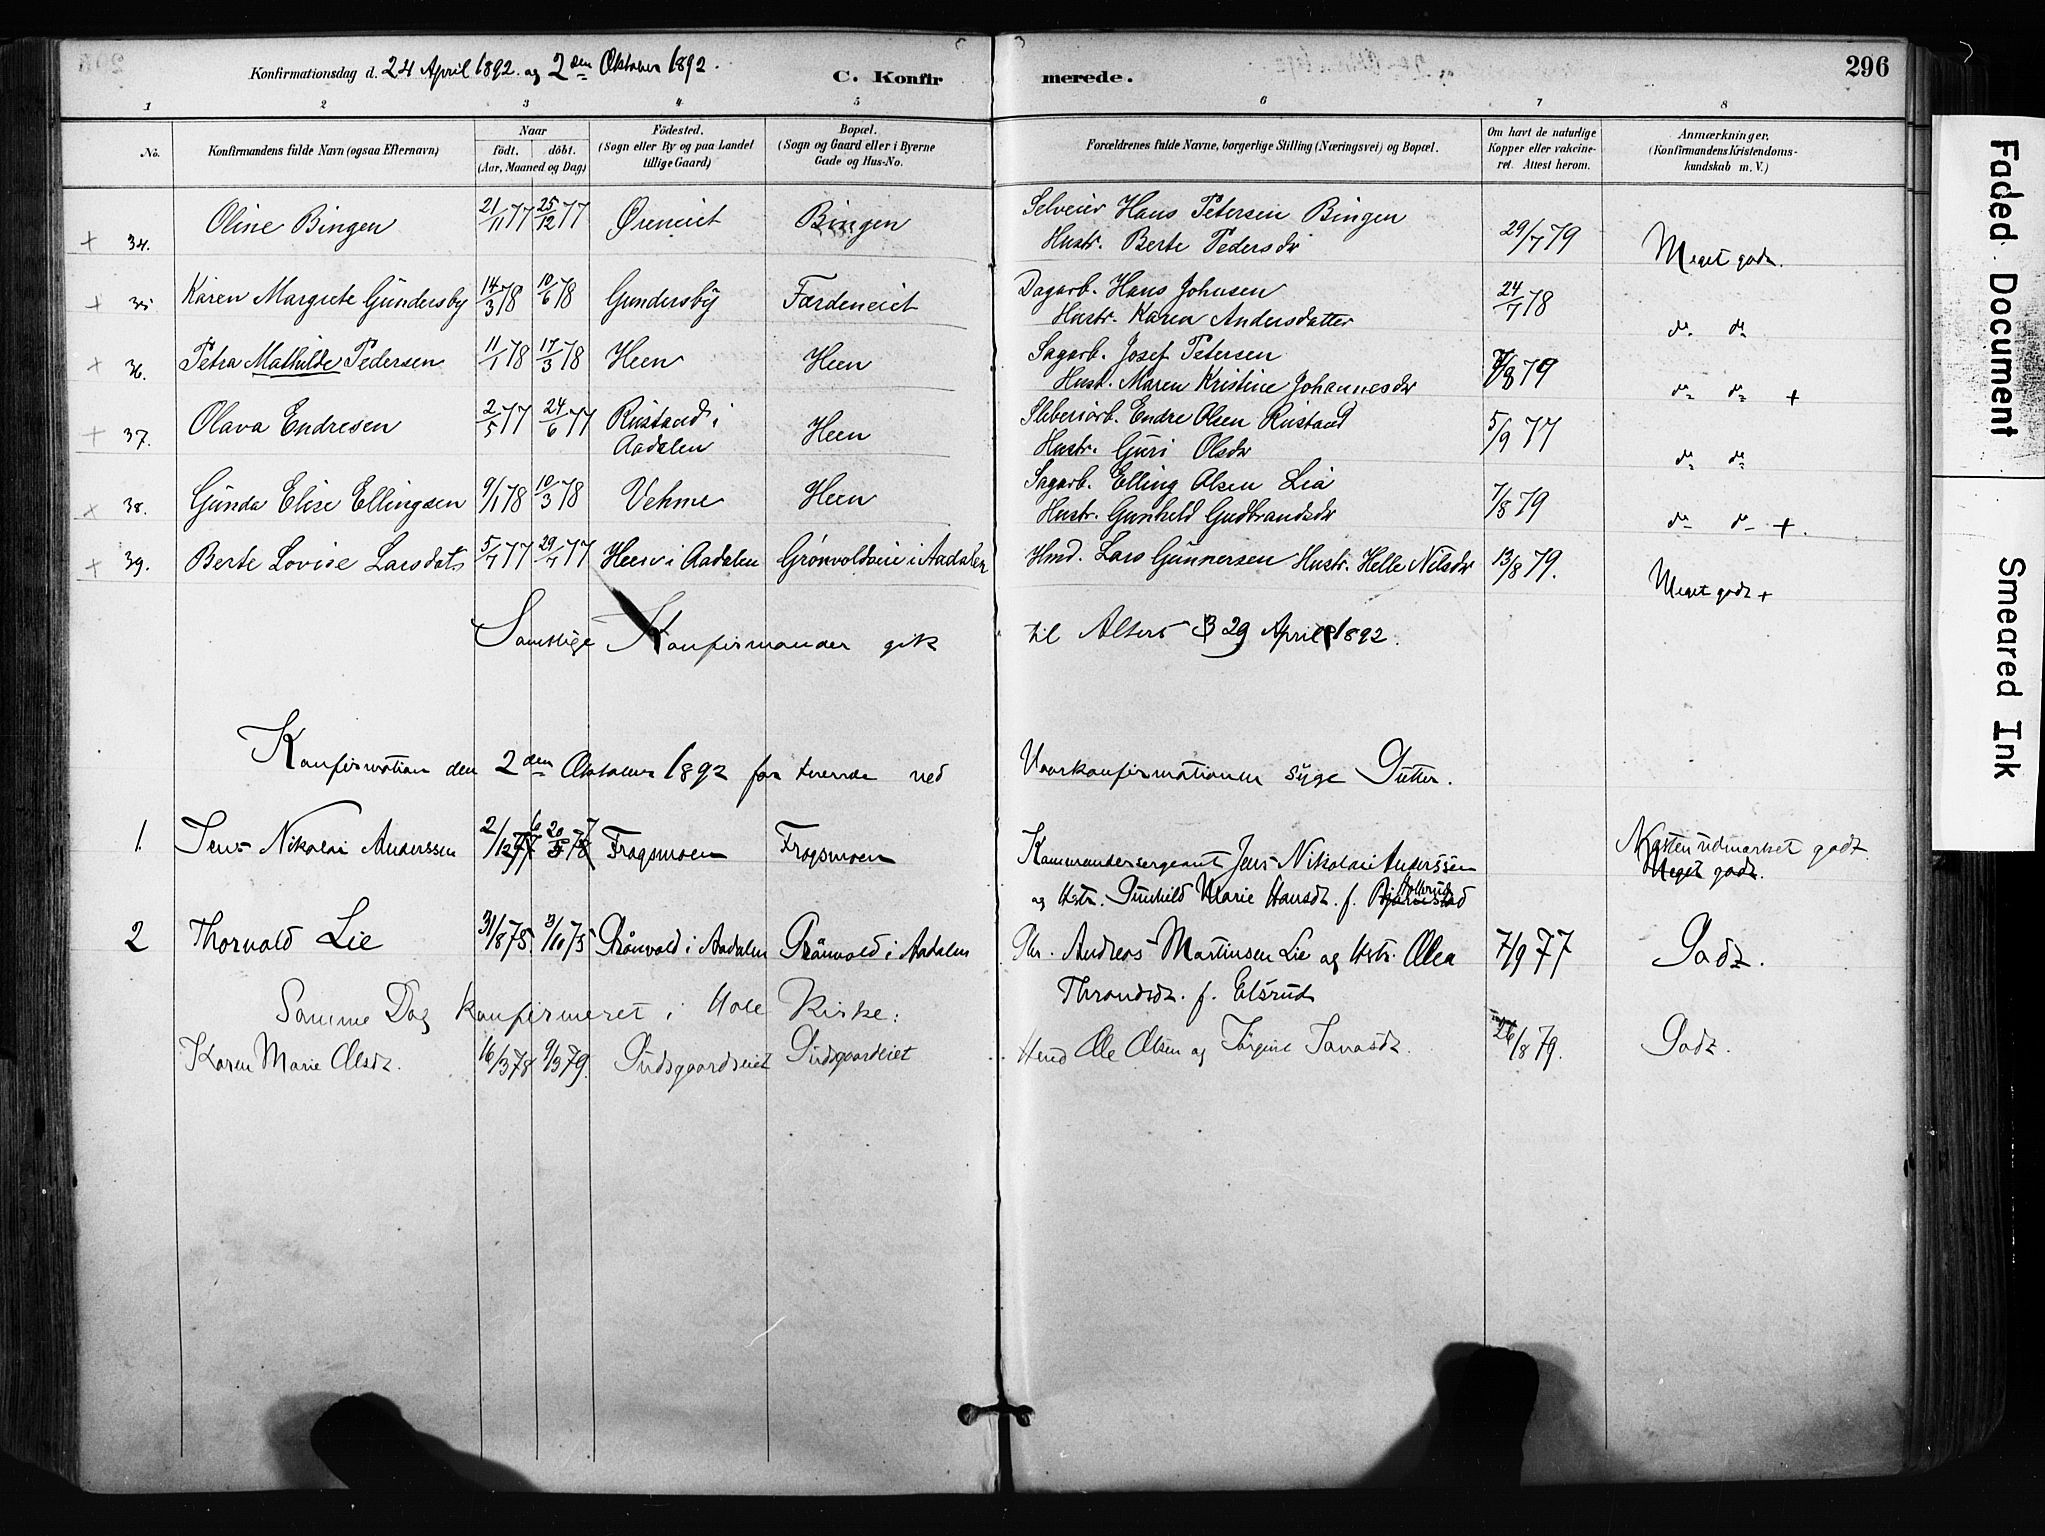 Konfirmationsdag d. 24 April 1892. og 2den Oktober 1892.
C. Konfirmerede.
296
1 2 3 4 5 6 7 8
No.
Konfirmandens fulde Navn (ogsaa Efternavn)
Naar
födt. döbt.
(Aar, Maaned og Dag)
Födested.
(Sogn eller By og paa Landet
tillige Gaard)
Bopæl.
(Sogn og Gaard eller i Byerne
Gade og Hus-No.
Forældrenes fulde Navne, borgerlige Stilling (Næringsvei) og Bopæl.
Om havt de naturlige
Kopper eller vakcine-
ret. Attest herom.
Anmærkninger.
(Konfirmandens Kristendoms-
kundskab m. V.)
+ 34. Oline Bingen 21/11 77 25/12 77 Øreneiet Bingen Selveier Hans Petersen Bingen 29/7 79 Meget godt.
Hustr. Berte Pedersdr
+ 35. Karen Margrete Gundersby 14/3 78 10/6 78 Gundersby Færdeneiet Dagarb. Hans Johnsen 24/7 78 do do
Hustr. Karen Andersdatter
+ 36. Petra Mathilde Pedersen 11/1 78 17/3 78 Heen Heen Sagarb. Josef Petersen 7/8 79 do do +
Hust. Maren Kristine Johannesdr
+ 37. Olava Endresen 2/5 77 24/6 77 Rustand i Heen Sliberiarb. Endre Olsen Rustand 5/9 77 do do
Aadalen Hustr. Guri Olsdr
+ 38. Gunda Elise Ellingsen 9/1 78 10/3 78 Vehme Heen Sagarb. Elling Olsen Lia 7/8 79 do do +.
Hustr. Gunhild Gudbrandsdr
+ 39. Berte Lovise Larsdat. 5/7 77 29/7 77 Heen i Aadalen Grönvoldeie i Aadalen Hmd. Lars Gunnersen Hustr. Helle Nilsdr 13/8 79. Meget godt +
Samtlige Konfirmander gik til Alters 29 April 1892.
Konfirmation den 2den Oktober 1892 for tvende ved Vaarkonfirmationen syge Gutter.
1. Jens Nikolai Anderssen 2/12 77 20 Frogsmoen Frogsmoen Kommandersergeant Jens Nikolai Anderssen Næsten udmærket godt.
og Hstr. Gunhild Marie Hansdt. f. Meget godt.
2 Thorvald Lie 31/8 75. 3/10 75 Grönvold i Aadalen Grönvold i Aadalen Andreas Martinsen Lie og Hstr. Olea 7/9 77 Godt.
Throndsdt. f. Elsrud
Samme Dag konfirmeret i Hole Kirke:
Karen Marie Olsdt. 16/3 78 9/3 79. Gudsgaardseiet Gudsgaardeiet Hmd Ole Olsen og Jörgine Jonasdt. 26/8 79. Godt.
Faded Document
Smeared Ink